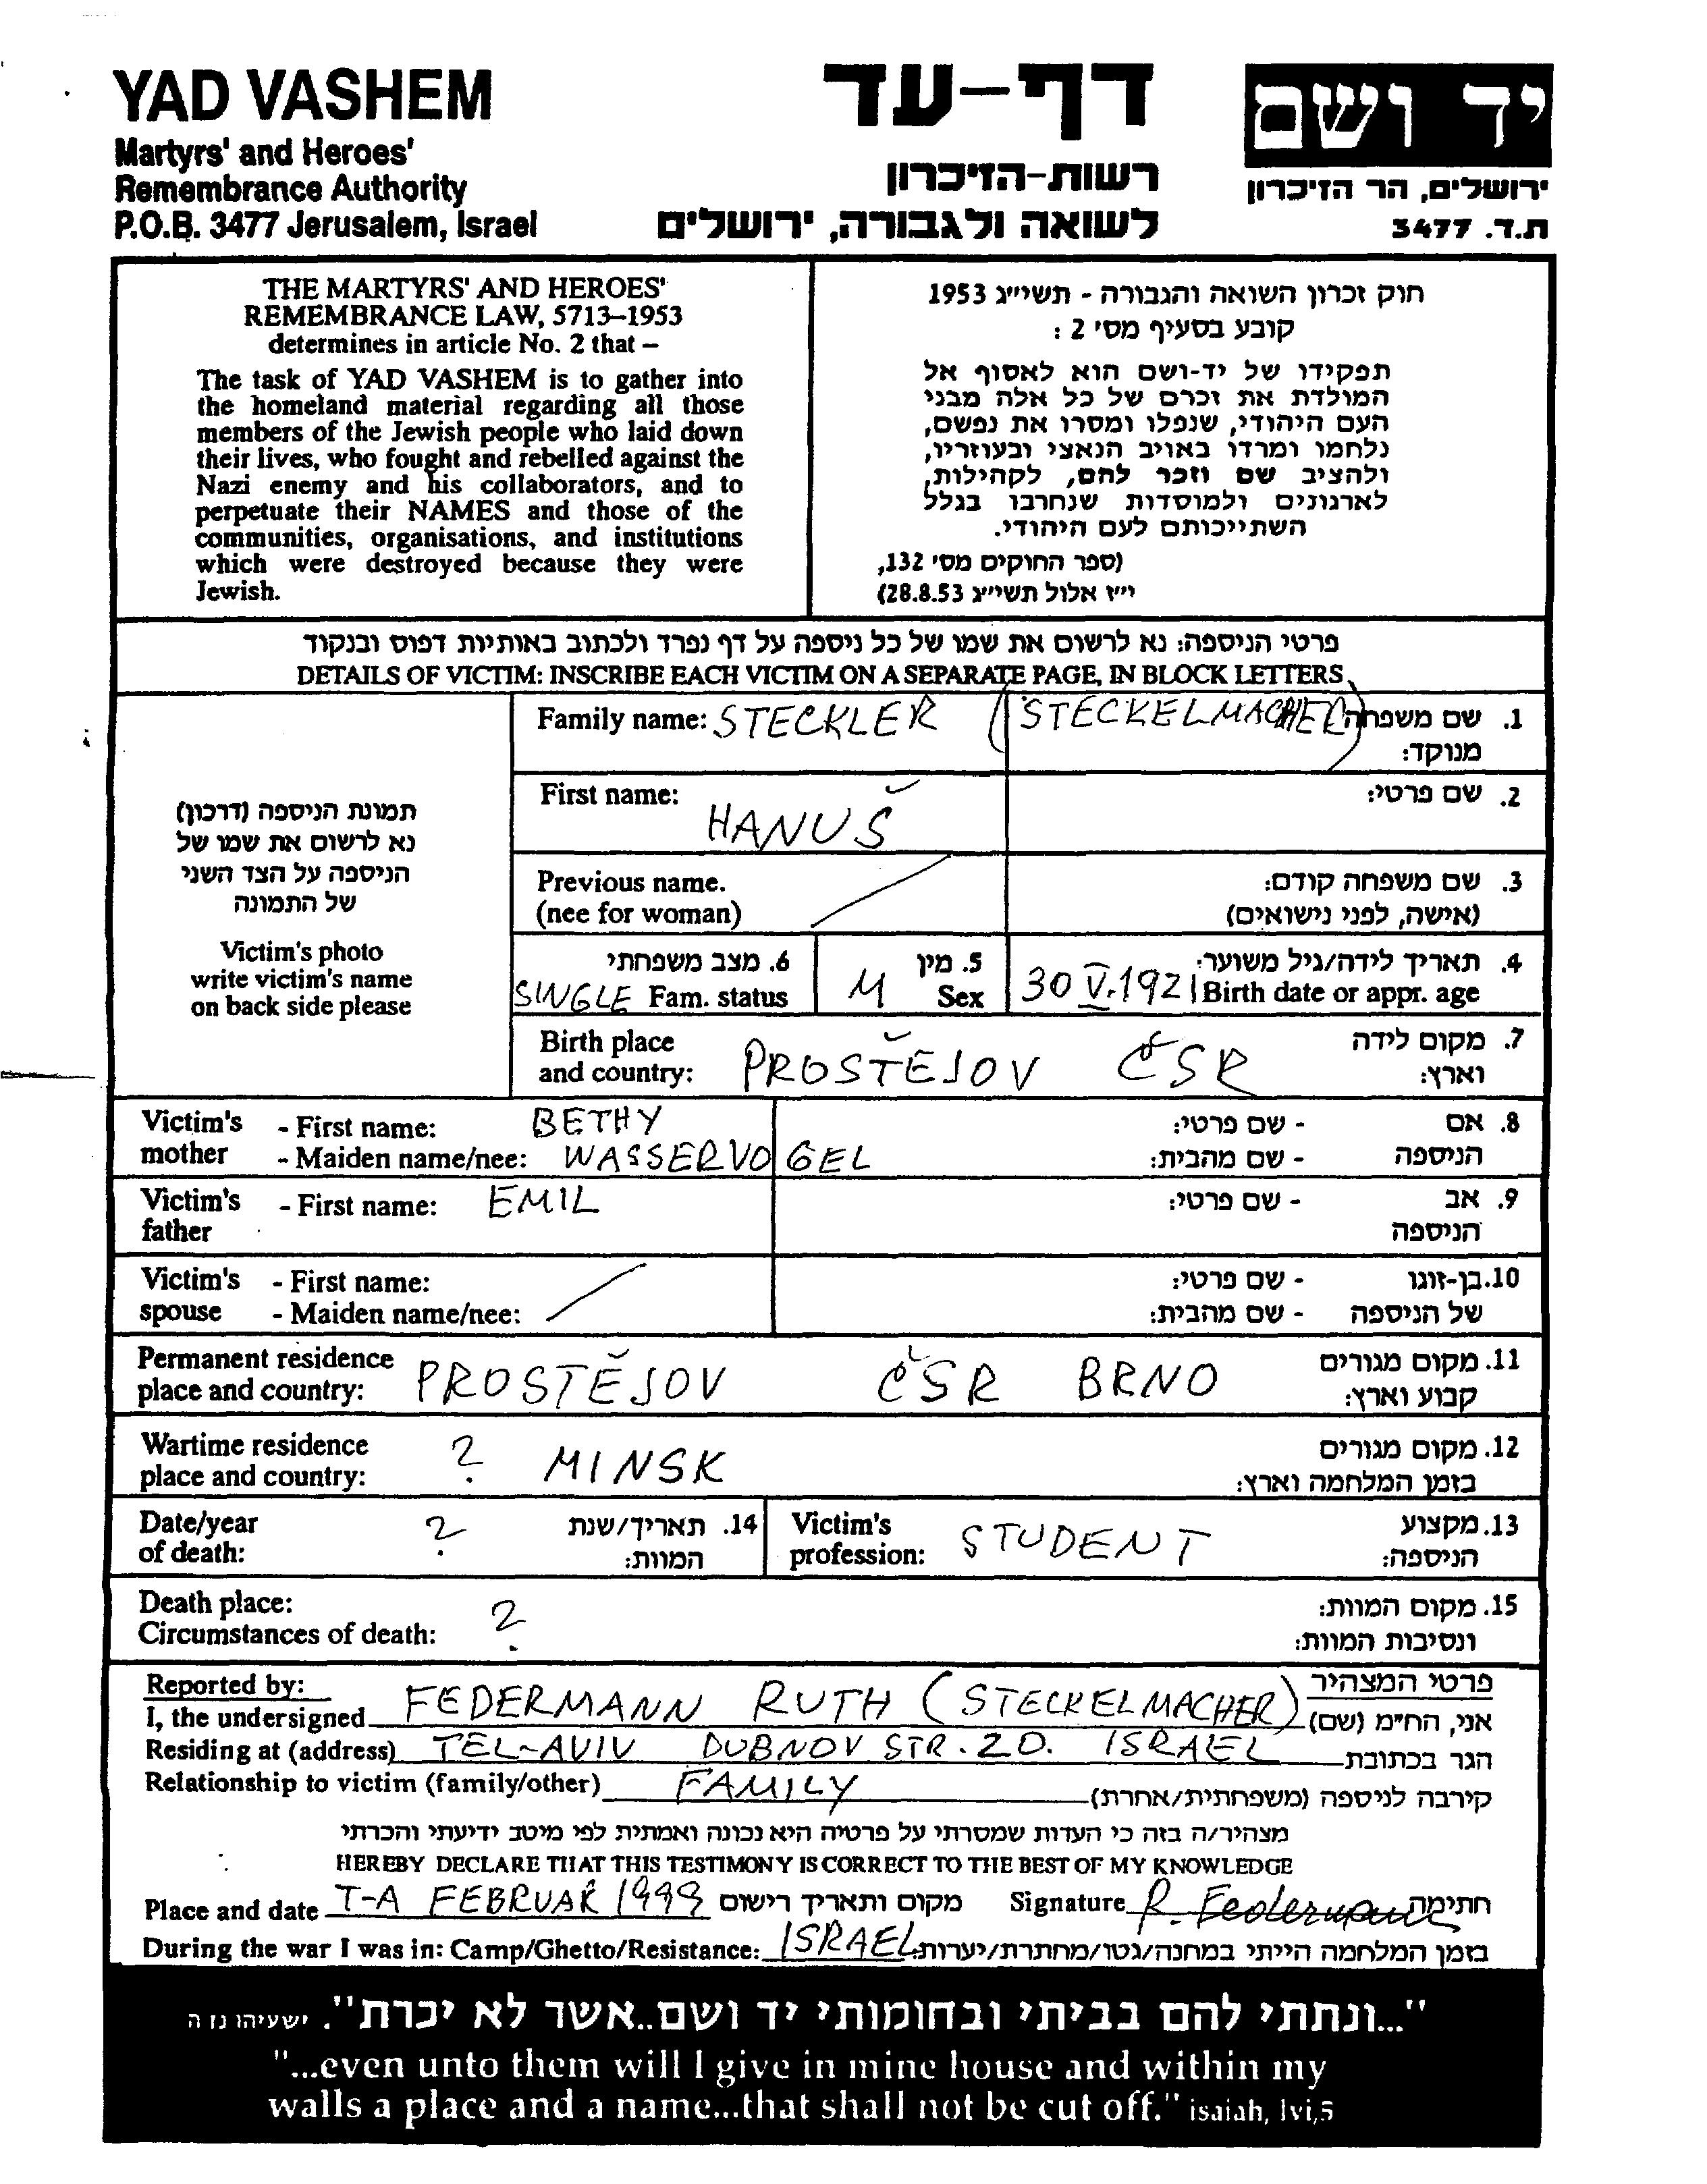 YAD VASHEM
Martyrs' and Heroes'
Remembrance Authority
P.O.B. 3477 Jerusalem, Israel
דף-עד
רשות-הזיכרון
לשואה ולגבורה, ירושלים
יד ושם
ירושלים, הר הזיכרון
ת.ד. 3477
THE MARTYRS' AND HEROES'
REMEMBRANCE LAW, 5713–1953
determines in article No. 2 that –
The task of YAD VASHEM is to gather into
the homeland material regarding all those
members of the Jewish people who laid down
their lives, who fought and rebelled against the
Nazi enemy and his collaborators, and to
perpetuate their NAMES and those of the
communities, organisations, and institutions
which were destroyed because they were
Jewish.
חוק זכרון השואה והגבורה - תשי״ג 1953
קובע בסעיף מס׳ 2 :
תפקידו של יד-ושם הוא לאסוף אל
המולדת את זכרם של כל אלה מבני
העם היהודי, שנפלו ומסרו את נפשם,
נלחמו ומרדו באויב הנאצי ובעוזריו,
ולהציב שם וזכר להם, לקהילות,
לארגונים ולמוסדות שנחרבו בגלל
השתייכותם לעם היהודי.
(ספר החוקים מס׳ 132,
י״ז אלול תשי״ג 28.8.53)
פרטי הניספה: נא לרשום את שמו של כל ניספה על דף נפרד ולכתוב באותיות דפוס ובנקוד
DETAILS OF VICTIM: INSCRIBE EACH VICTIM ON A SEPARATE PAGE, IN BLOCK LETTERS
תמונת הניספה (דרכון)
נא לרשום את שמו של
הניספה על הצד השני
של התמונה
Victim's photo
write victim's name
on back side please
Family name: STECKLER (STECKELMACHER) 1. שם משפחה
מנוקד:
First name: HANUŠ 2. שם פרטי:
Previous name. 3. שם משפחה קודם:
(nee for woman) (אישה, לפני נישואים)
6. מצב משפחתי 5. מין 4. תאריך לידה/גיל משוער:
SINGLE Fam. status M Sex 30 V. 1921 Birth date or appr. age
Birth place PROSTĚJOV ČSR 7. מקום לידה
and country: וארץ:
Victim's - First name: BETHY - שם פרטי: 8. אם
mother - Maiden name/nee: WASSERVOGEL - שם מהבית: הניספה
Victim's - First name: EMIL - שם פרטי: 9. אב
father הניספה
Victim's - First name: - שם פרטי: 10. בן-זוגו
spouse - Maiden name/nee: - שם מהבית: של הניספה
Permanent residence PROSTĚJOV ČSR BRNO 11. מקום מגורים
place and country: קבוע וארץ:
Wartime residence ? MINSK 12. מקום מגורים
place and country: בזמן המלחמה וארץ:
Date/year ? 14. תאריך/שנת Victim's STUDENT 13. מקצוע
of death: המוות: profession: הניספה:
Death place: ? 15. מקום המוות:
Circumstances of death: ונסיבות המוות:
Reported by: פרטי המצהיר
I, the undersigned FEDERMANN RUTH (STECKELMACHER) אני, החי״מ (שם)
Residing at (address) TEL-AVIV DUBNOV STR. 20. ISRAEL הגר בכתובת
Relationship to victim (family/other) FAMILY קירבה לניספה (משפחתית/אחרת)
מצהיר/ה בזה כי העדות שמסרתי על פרטיה היא נכונה ואמתית לפי מיטב ידיעתי והכרתי
HEREBY DECLARE THAT THIS TESTIMONY IS CORRECT TO THE BEST OF MY KNOWLEDGE
Place and date T-A FEBRUAR 1999 מקום ותאריך רישום Signature R. Federmann חתימה
During the war I was in: Camp/Ghetto/Resistance: ISRAEL בזמן המלחמה הייתי במחנה/גטו/מחתרת/יערות:
"...ונתתי להם בביתי ובחומותי יד ושם..אשר לא יכרת". ישעיהו נו ה
"...even unto them will I give in mine house and within my
walls a place and a name...that shall not be cut off." isaiah, lvi,5